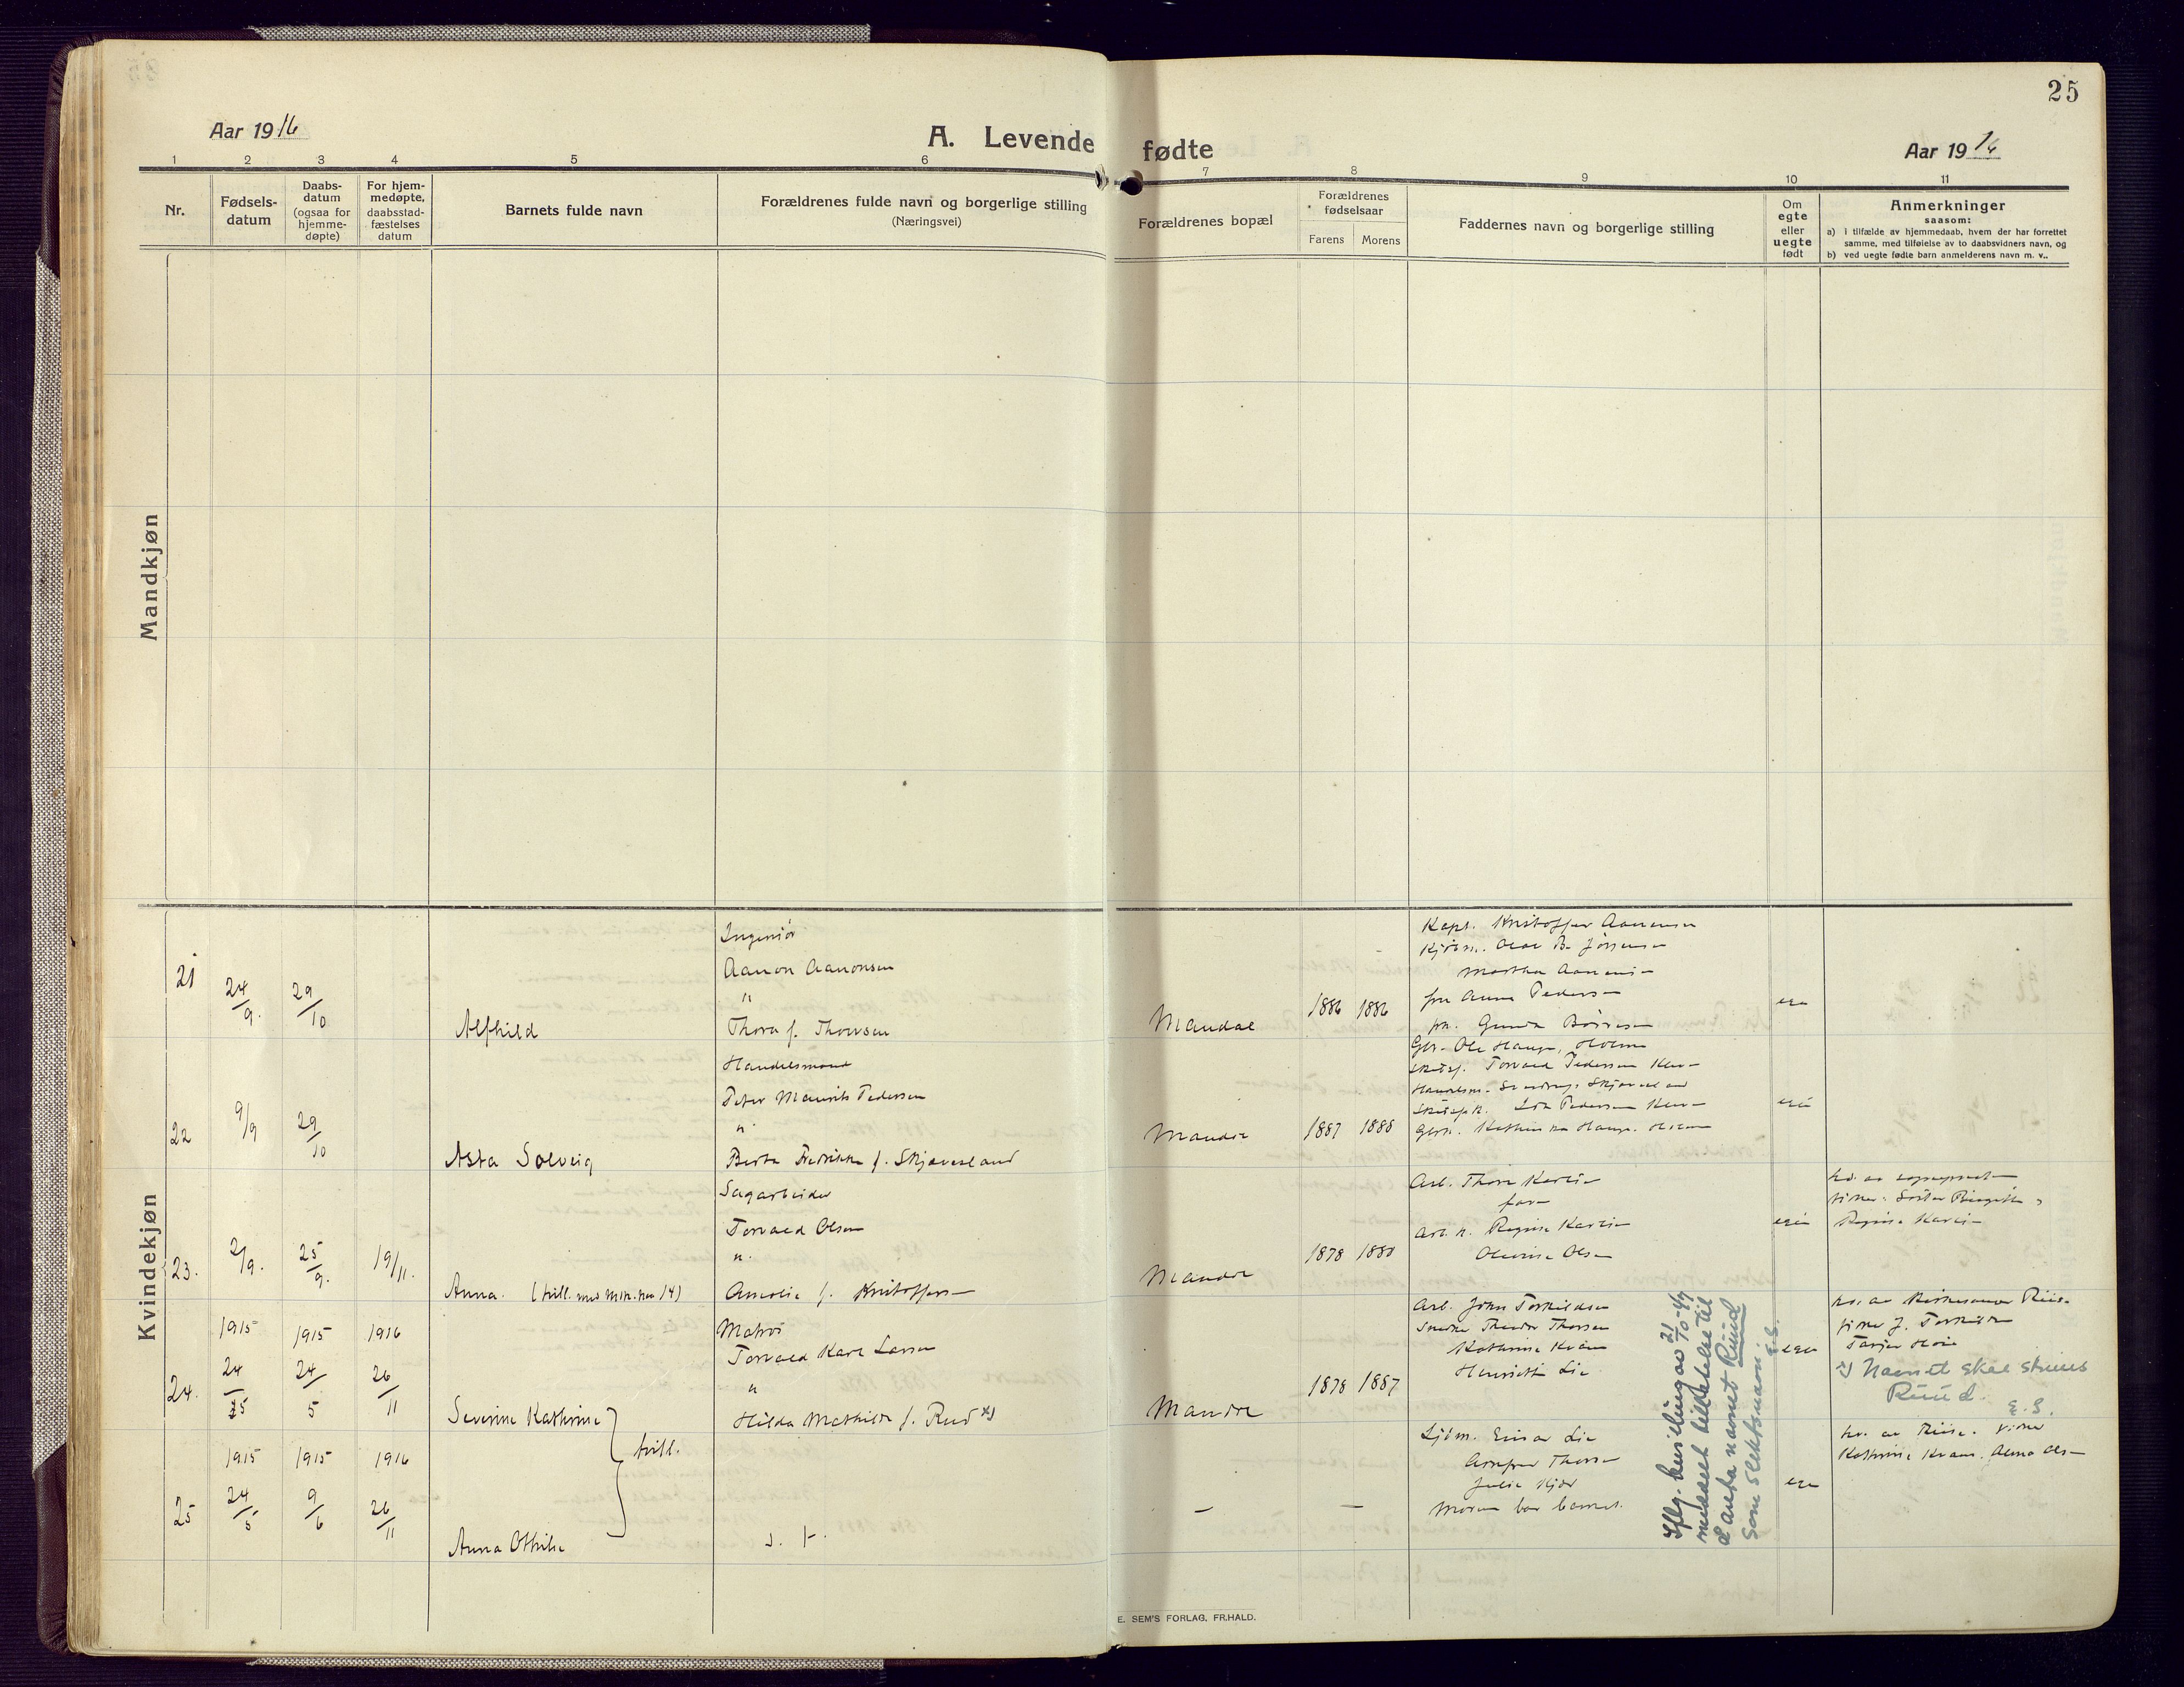 25
Aar 1916
A. Levende fødte
Aar 1916
1 2 3 4 5 6 7 8 9 10 11
Nr.
Fødsels-
datum
Daabs-
datum
(ogsaa for
hjemme-
døpte)
For hjem-
medøpte,
daabsstad-
fæstelses
datum
Barnets fulde navn
Forældrenes fulde navn og borgerlige stilling
(Næringsvei)
Forældrenes bopæl
Forældrenes
fødselsaar
Farens Morens
Faddernes navn og borgerlige stilling
Om
egte
eller
uegte
født
Anmerkninger
saasom:
a) i tilfælde av hjemmedaab, hvem der har forrettet
samme, med tilføielse av to daabsvidners navn, og
b) ved uegte fødte barn anmelderens navn m. v..
Mandkjøn
Kvindekjøn
21
24/9.
29/10
Alfhild
Ingeniør
Aanon Aanonsen
"
Thora f. Thorsen
Mandal
1886 1886
Kapt. Kristoffer Aanensen
Kjøbm. Olav B. Jörgensen
Martha
fru Anna Pedersen
Gunda
22
9/9
29/10
Asta Solveig
Handelsmand
Peter Maurits Pedersen
"
Berta Fredrikke f. Skjæveland
Mandal
1887 1888
Ole Hauge, Holum
Torvald Pedersen
Handelsm. Skjæveland
Pedersen
Hauge. Holum
23.
2/9.
25/9.
19/11.
Anna. (tvill. med M.k. no 14)
Sagarbeider
Torvald Olsen
"
Amalie f. Kristoffersen
Mandal
1878 1880
Arb. Thore
far
Arb. k. Regine
Olsen
Regine
24.
1915
24/5
1915
24/5
1916
26/11
Severine Kathrine
Matros
Torvald Karl Larsen
"
Hilda Mathilde f. Rud x)
Mandal
1878 1887
Arb. John Torkildsen
Theodor Thorsen
Kathrine Kvam
Henriette Lie
J. Torkildsen
x) Navnet skal skrives
Rüüd.
E.S.
tvill.
25
1915
24/5
1915
9/6
1916
26/11
Anna Othilie
s. f.
— —
Sjöm. Einar Lie
Thorsen
Julie
Moren bar barnet.
Kathrine Kvam. Anna Olsen
Iflg. bevilling av 21/10-49
meddeelt tilladelse til
å anta navnet Rüüd
som slektsnavn.
E.S.
E. SEM'S FORLAG, FR.HALD.